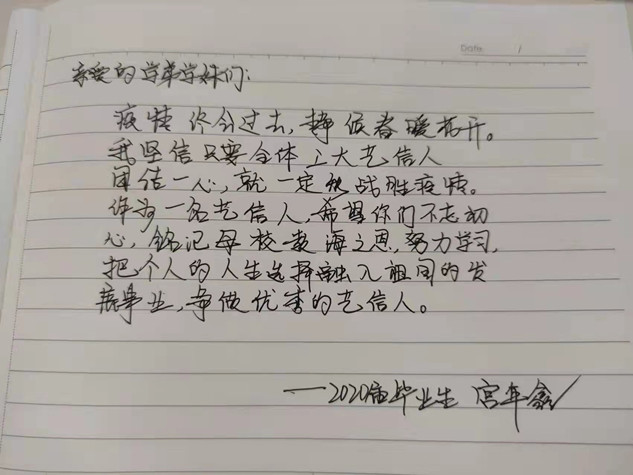 Date /
亲爱的学弟学妹们:
疫情终会过去,静候春暖花开。
我坚信只要全体工大艺信人
团结一心,就一定能战胜疫情。
作为一名艺信人,希望你们不忘初
心,铭记母校教诲之恩,努力学习,
把个人的人生选择融入祖国的发
展事业,争做优秀的艺信人。
——2020届毕业生 宫